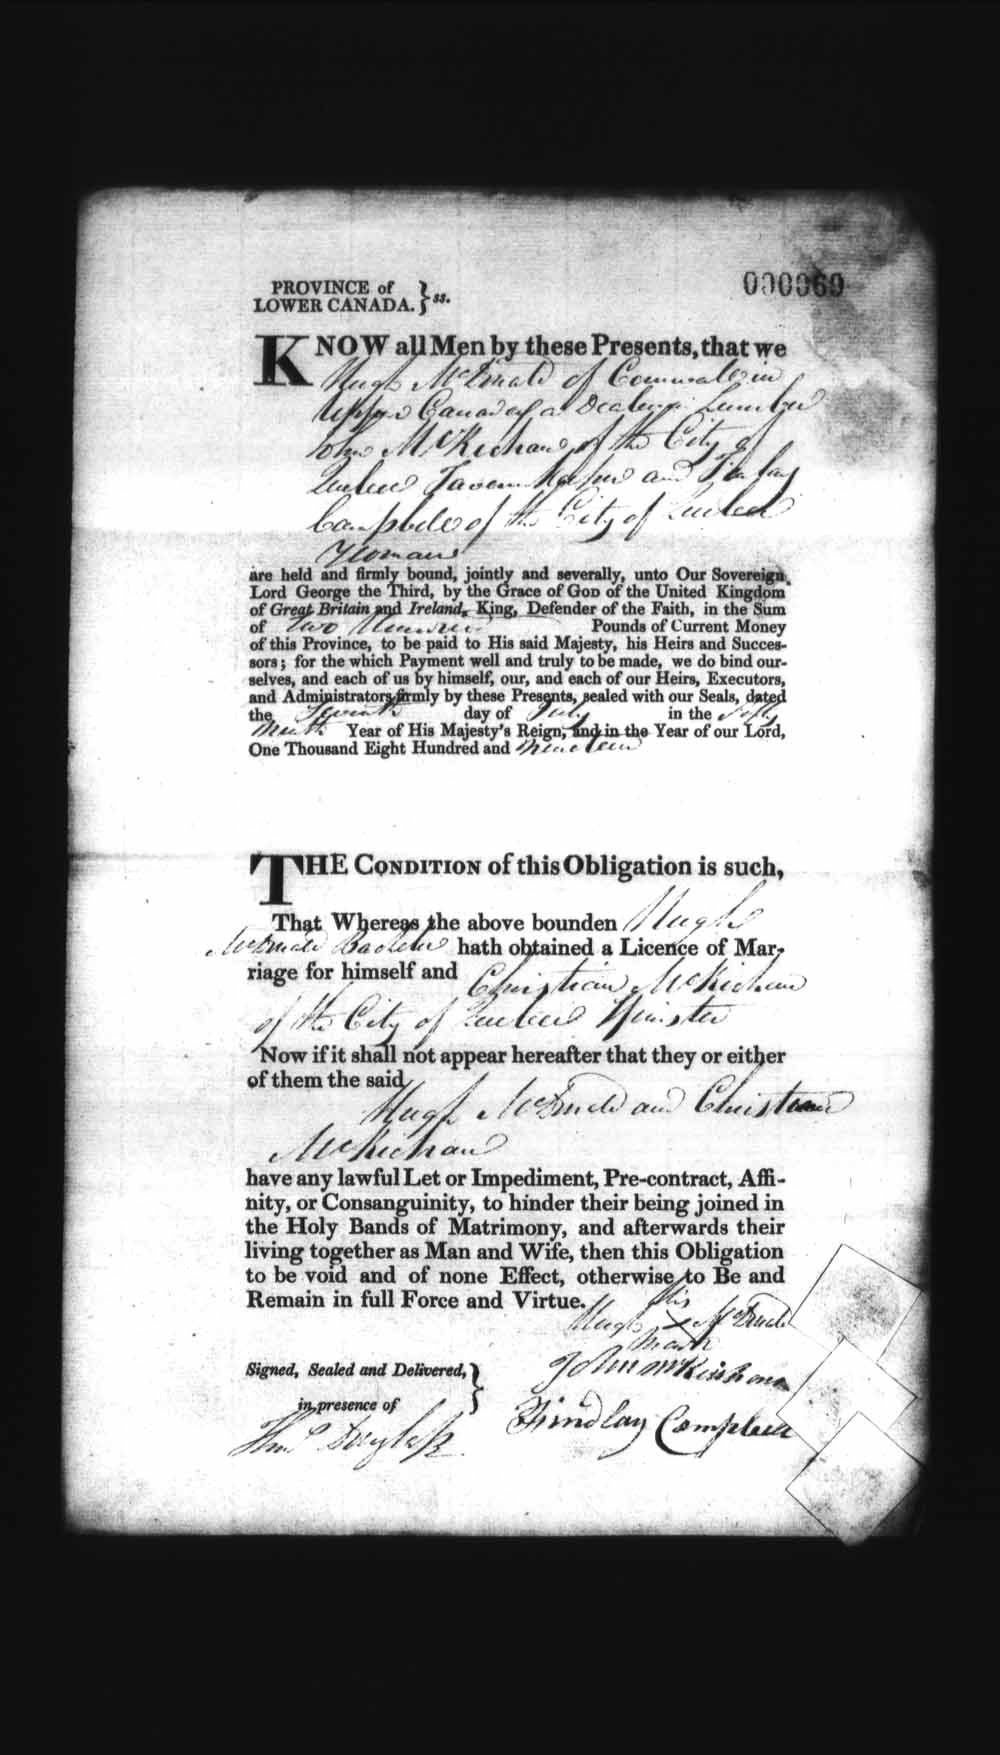 PROVINCE of
LOWER CANADA. } ss.
000069
KNOW all Men by these Presents, that we
Hugh McDonald of Cornwall in
Upper Canada a Dealer in Lumber
John McKechan of the City of
Quebec Tavern Keeper and Findlay
Campbell of the City of Quebec
Yeoman
are held and firmly bound, jointly and severally, unto Our Sovereign
Lord George the Third, by the Grace of GOD of the United Kingdom
of Great Britain and Ireland, King, Defender of the Faith, in the Sum
of Two Hundred Pounds of Current Money
of this Province, to be paid to His said Majesty, his Heirs and Succes-
sors; for the which Payment well and truly to be made, we do bind our-
selves, and each of us by himself, our, and each of our Heirs, Executors,
and Administrators, firmly by these Presents, sealed with our Seals, dated
the Seventh day of July in the fifty
Ninth Year of His Majesty's Reign, and in the Year of our Lord,
One Thousand Eight Hundred and nineteen
THE CONDITION of this Obligation is such,
That Whereas the above bounden Hugh
McDonald Bachelor hath obtained a Licence of Mar-
riage for himself and Christian McKechan
of the City of Quebec Spinster
Now if it shall not appear hereafter that they or either
of them the said
Hugh McDonald and Christian
McKechan
have any lawful Let or Impediment, Pre-contract, Affi-
nity, or Consanguinity, to hinder their being joined in
the Holy Bands of Matrimony, and afterwards their
living together as Man and Wife, then this Obligation
to be void and of none Effect, otherwise to Be and
Remain in full Force and Virtue.
his
Hugh X McDonald
mark
Signed, Sealed and Delivered, }
in presence of
John McKechan
Findlay Campbell
Thos